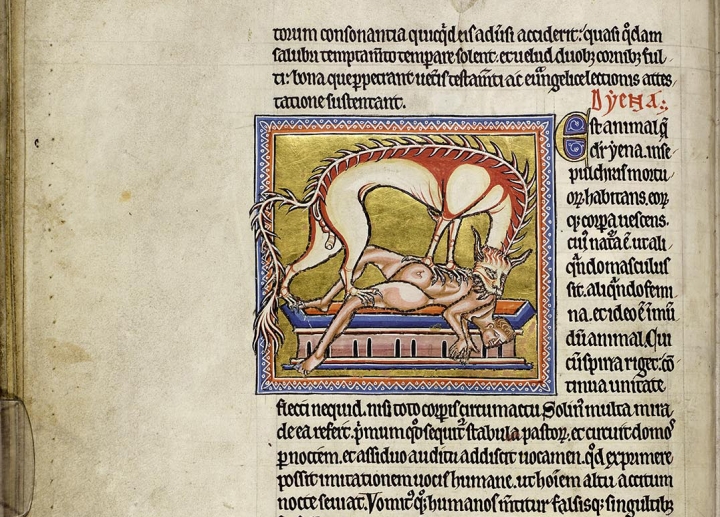 torum consonantia quicq̃d eis adũsi acciderit: quasi q̊dam
salubri temptam̃to temperare solent. et uelud duobꝫ cornibꝫ ful
ti: bona que ꝑpetrant uet̃is testam̃ti ac eũngelice lectionis attes
tatione sustentant.
Dyena:
Est animal q̃
dr̃ yena. in se
pulchris mortu
oꝝ habitans. eoꝝ
qꝫ corꝑa uescens.
cui' nat̃a ẽ ut ali
q̃ndo masculus
sit. aliq̃ndo femi
na. et ideo ẽ inmũ
dũ animal. Cui
cũ spina riget. cõ
tinua unitate
flecti nequid. nisi toto corꝑis circumactu. Solin' multa mira
de ea refert. p̃mum q̊d seq̃tur stabula pastoꝝ. et circuit domos
ꝑ noctem. et assiduo auditu addiscit uocamen. q̊d exprimere
possit imitationem uocis humane. ut hoĩem astu accitum
nocte seuiat. Vomit' qꝫ humanos m̃titur falsisqꝫ singultibꝫ